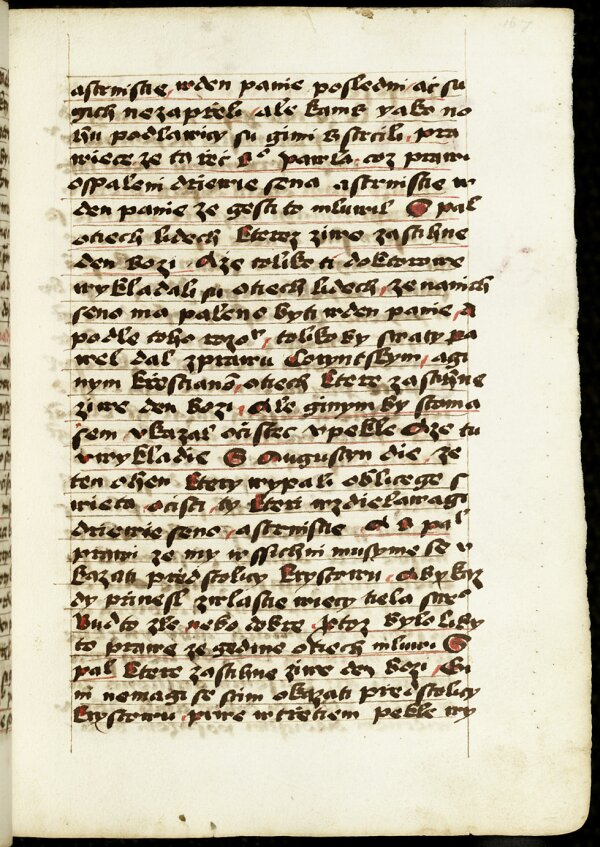 astrnistie, wden panie posledni ac su
gich nezapreli, ale kamz yako no
hu podlawicy su gimi vstrcili, pra
wiece ze ta rec S° pawla coz prawi
ospaleni driewie sena astrnistie w
den panie ze gesti to mluwil S pal
otiech lidech kteroz ziwe zastihne
den Bozi, Aze toliko ti doktorowe
wykladali su otiech lidech, ze nanich
seno ma paleno byti wden panie, A
podle toho rozo°, toliko by straty Pa
wel dal zprawu Coryntskym, agi
nym krestiano, otiech ktere zastihne
ziwe den Bozi, Ale ginym by stoma
sem vkazal ocistec vpekle Aze tu
vwykladie S Augustyn die, ze
ten ohen ktery wypali oblicege s
wieta, ocisti, ty kteri wzdielawagi
driewie seno, astrnistie A S pal
prawi ze my wssichni musyme se v
kazati predstolicy krystowu, Aby kaz
dy prinesl zwlastie wiecy tiela swe°
Bud to zle nebo dobre, ptoz bylo liby
to prawe ze gedine otiech mluwi S
pal ktere zastihne ziwe den Bozi,
ni nemagi se stim okazati predstolicy
krystowu, prwe wtretiem pekle wy